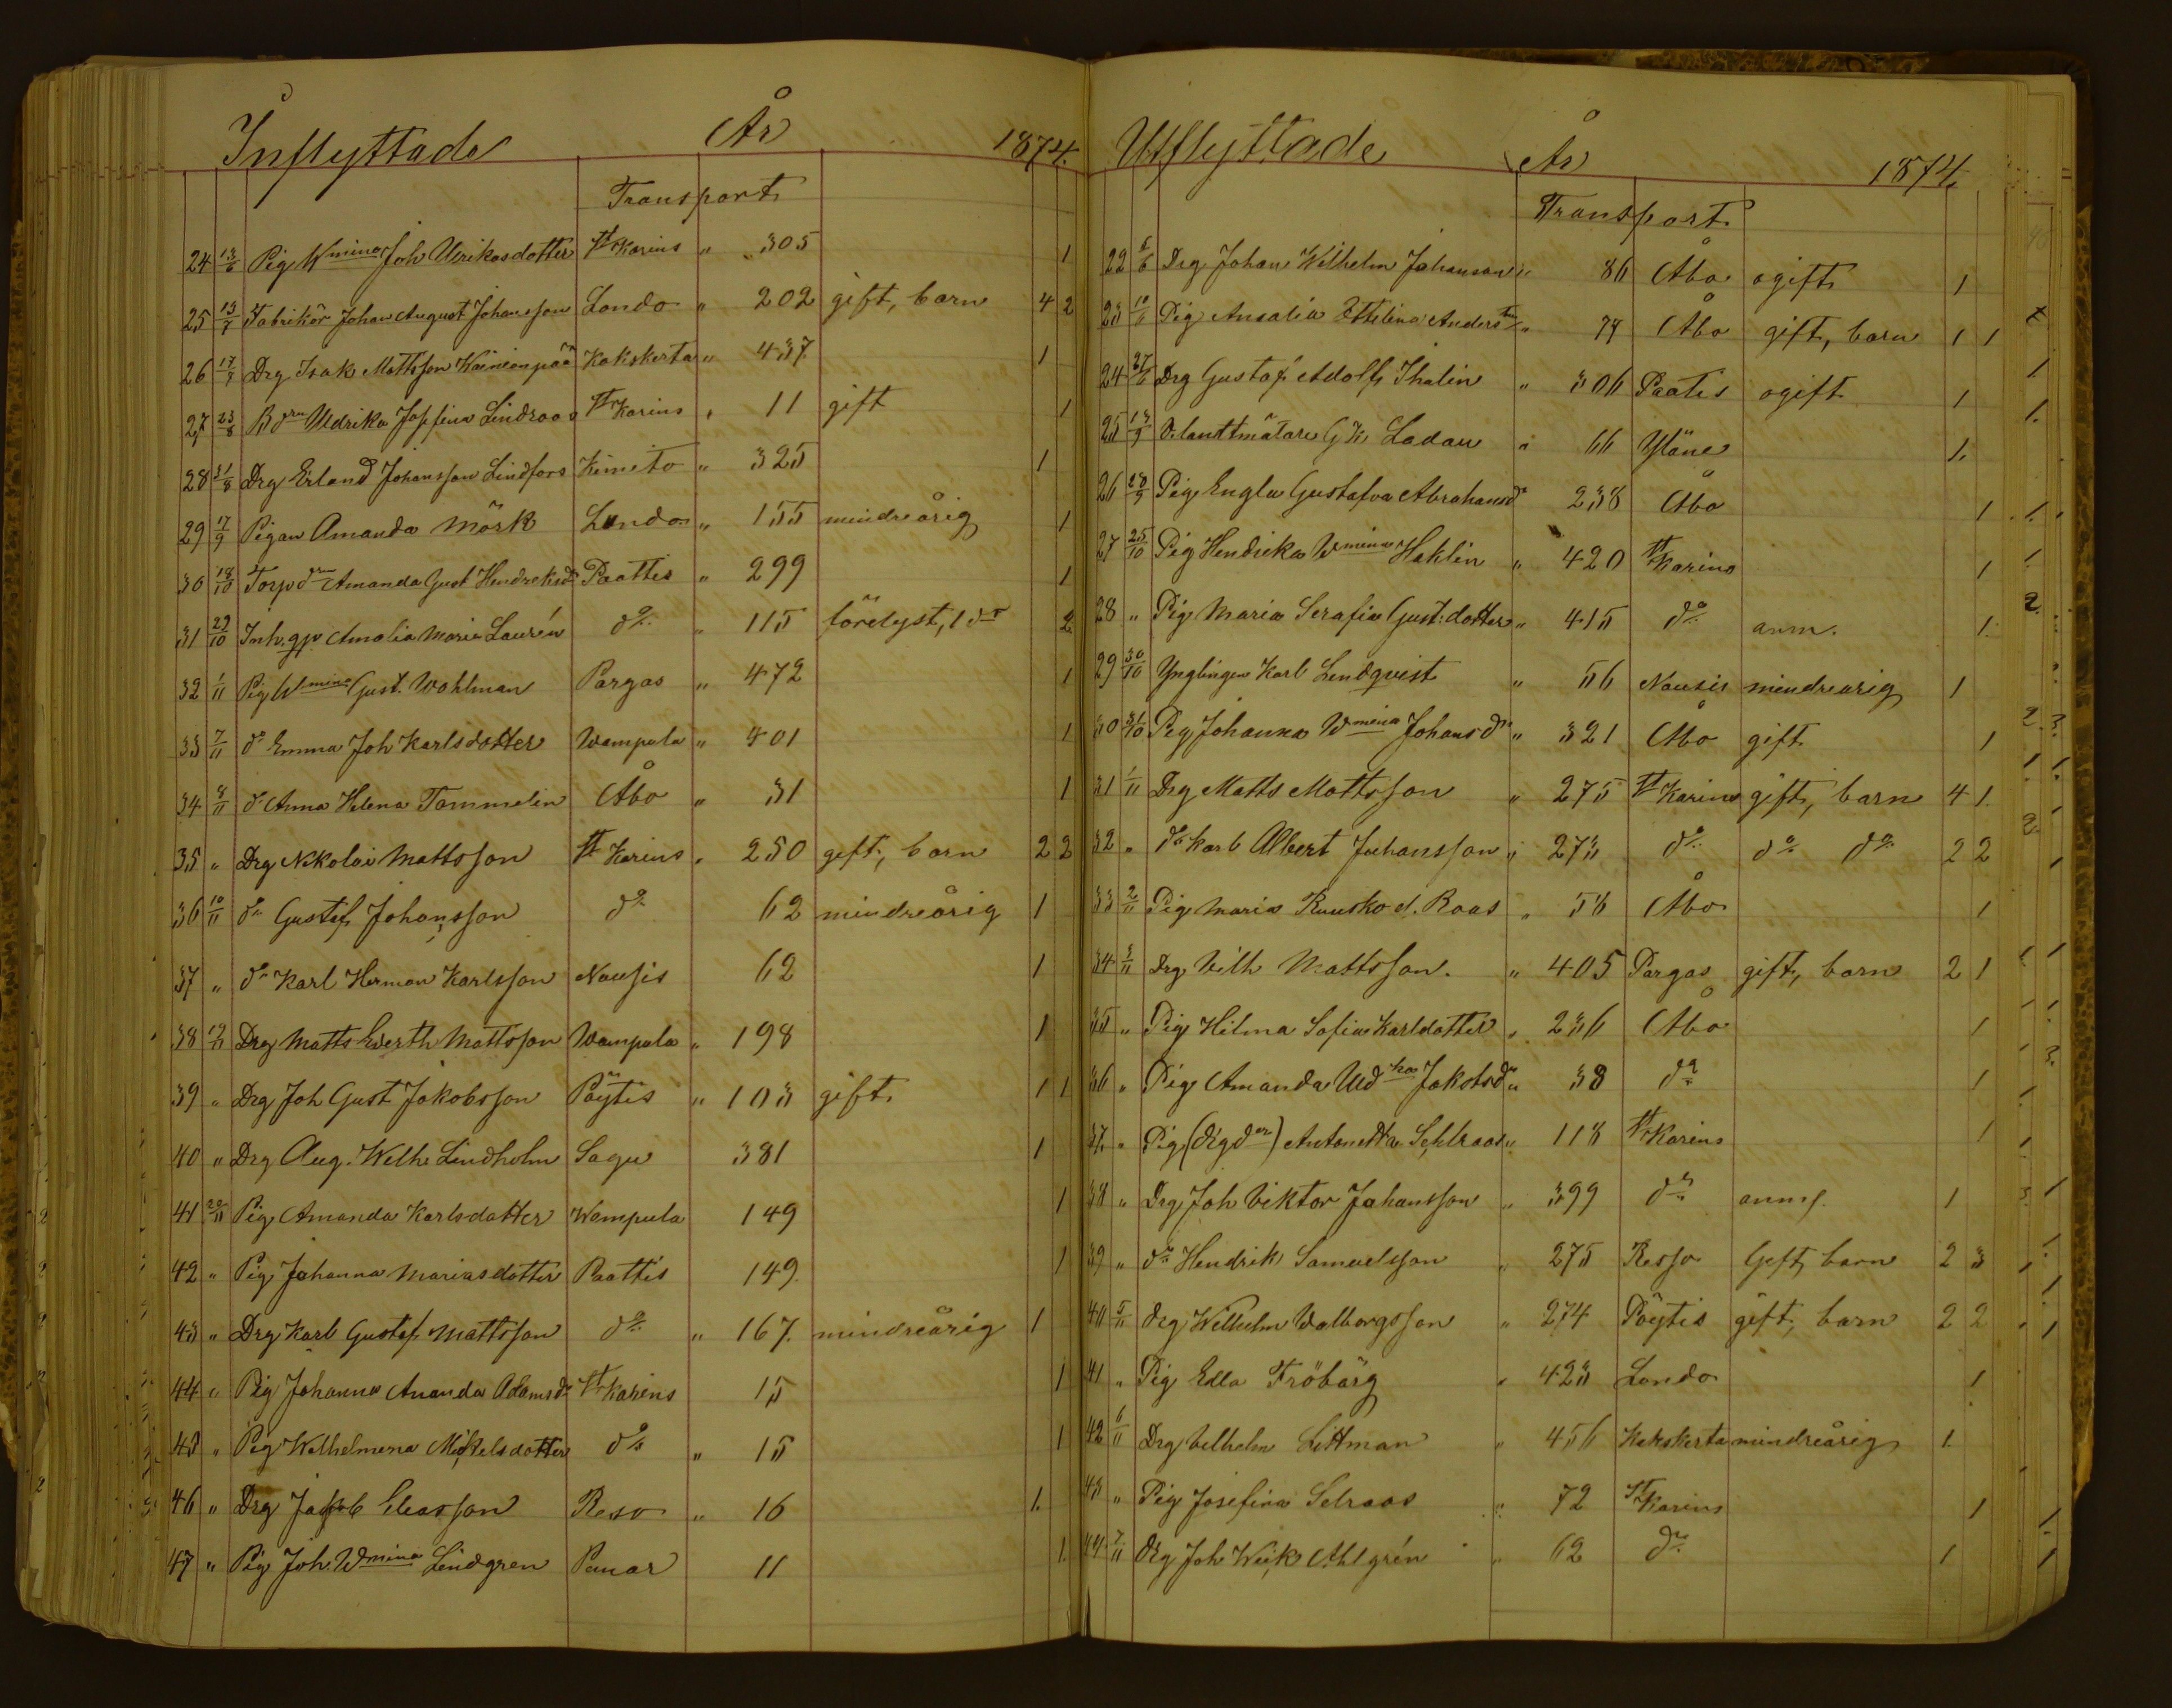 Inflyttade År 1874.
Transport
24 13/6 Pig Wmina Joh Ulrikasdotter St Karins " 305 1
25 13/7 Fabrikör Johan August Johansson Lundo " 202 gift, barn 4 2
26 17/7 Drg Isak Mattsson Kakskerta " 437 1
27 23/8 Ulrika Josefina Lindroos St Karins " 11 gift 1
28 31/8 Drg Erland Johansson Lindfors Kimito " 325 1
29 17/9 Pigan Amanda Mörk Lundo " 155 mindreårig 1
30 18/10 Torpdrn Amanda Gust Hendriksdr Paattis " 299 1
31 29/10 Inh. Amalia Maria Laurén do " 115 1 dr 2
32 1/11 Pig Wmina Gust. Wahlman Pargas " 472 1
33 7/11 do Emma Joh Karlsdotter Wampula " 401 1
34 8/11 do Anna Helena Tammelin Åbo " 31 1
35 " Drg Nikolai Mattsson St Karins " 250 gift, barn 2 2
36 10/11 do Gustaf Johansson do 62 mindreårig 1
37 " do Karl Herman Karlsson Nousis 62 1
38 19/11 Drg Matts Everth Mattsson Wampula " 198 1
39 " Drg Joh Gust Jakobsson Pöytis " 103 gift 1 1
40 " Drg Aug. Welh Lindholm Sagu 381 1
41 20/11 Pig Amanda Karlsdotter Wampula 149 1
42 " Pig Johanna Mariasdotter Paattis 149 1
43 " Drg Karl Gustaf Mattsson do " 167 mindreårig 1
44 " Pig Johanna Amanda Adamsdr St Karins 15 1
45 " Pig Welhelmina Mikkelsdotter do " 15 1
46 " Drg Jakob Eliasson Reso " 16 1.
47 " Pig Joh. Wmina Lindgren Pemar 11 1.
Utflyttade År 1874.
Transport
22 6/6 Drg Johan Wilhelm Johansson " 86 Åbo ogift 1
23 10/11 Pig Amalia Ottilina Anders " 77 Åbo gift, barn 1 1
24 Drg Gustaf Adolf Thalin " 306 Paatis ogift 1
25 13/9 V. landtmätare G K Ladau " 66 Yläne 1.
26 28/9 Pig Engla Gustafva Abrahamsdr 238 Åbo 1
27 25/10 Pig Hendrika Wmina Heklin " 420 St Karins 1
28 " Pig Maria Serafia Gust.dotter " 415 do anm. 1
29 30/10 Ynglingen Karl Lendqvist " 56 Nousis mindreårig 1
30 31/10 Pig Johanna Wmina Johansdr " 321 Åbo gift 1
31 1/11 Drg Matts Mattsson " 275 St Karins gift, barn 4 1
32 " do Karl Albert Johansson " 273 do do do 2 2
33 2/11 Pig Maria Ruusko d. Roos " 58 Åbo 1
34 3/11 Drg Vilh Mattsson. " 405 Pargas gift, barn 2 1
35 " Pig Hilma Sofia Karlsdotter " 236 Åbo 1
36 " Pig Amanda Ulrka Jakobsdr " 38 do 1
37 " Pig (Drgdrn) Antonetta Selroos " 118 St Karins 1
38 " Drg Joh Viktor Johansson " 399 do anm. 1
39 " do Hendrik Samuelsson " 275 Resso Gift, barn 2 3
40 5/11 Drg Wilhelm Walborgsson " 274 Pöytis gift, barn 2 2
41 " Pig Edla Fröbärg " 423 Lundo 1
42 6/11 Drg Vilhelm Littman " 456 Kakskerta mindreårig 1.
43 " Pig Josefina Selroos " 72 St Karins 1
44 7/11 Drg Joh Ahlgrén " 62 do 1